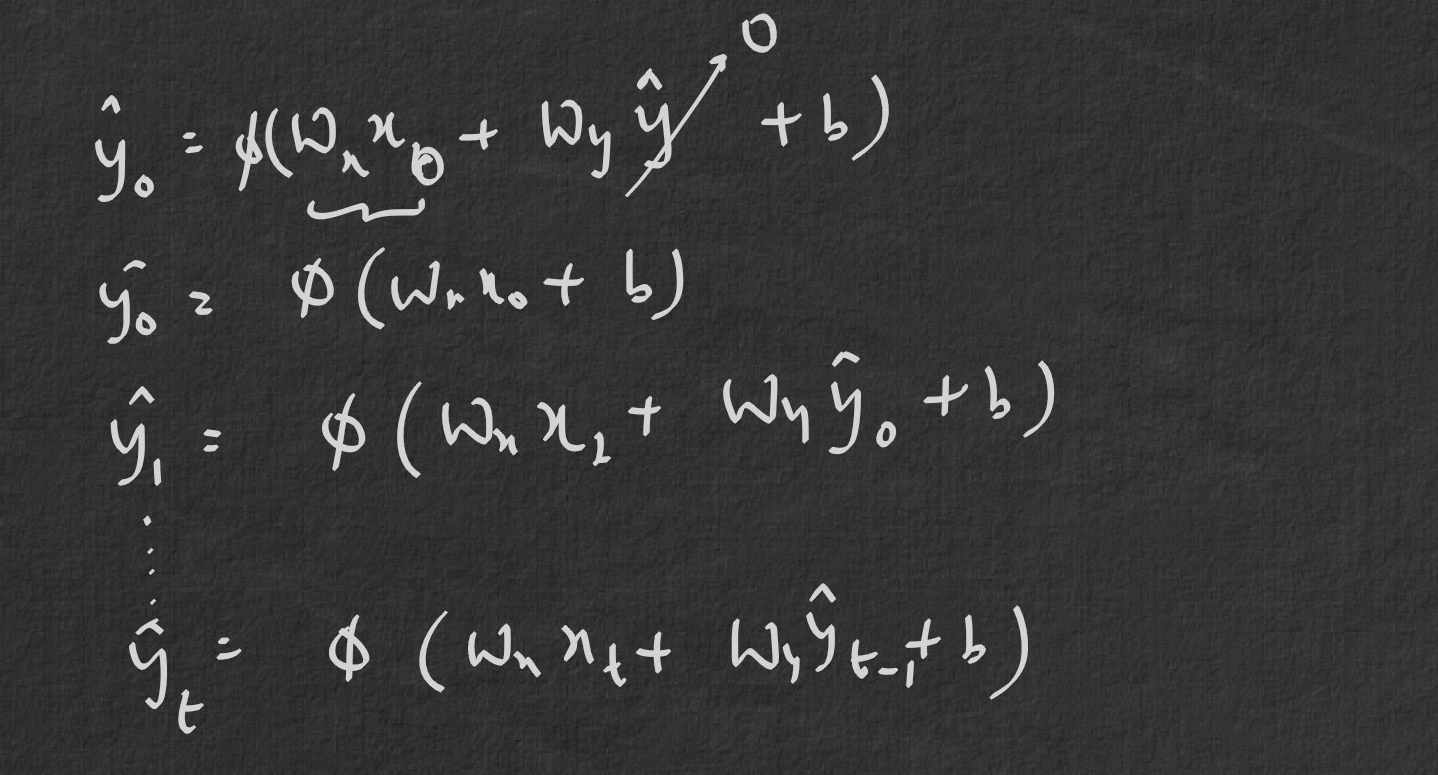 0
ŷ₀ = ϕ(Wₓx₀ + W_y ŷ + b)
ŷ₀ = ϕ(Wₓx₀ + b)
ŷ₁ = ϕ(Wₓx₁ + W_y ŷ₀ + b)
ŷₜ = ϕ(Wₓxₜ + W_y ŷₜ₋₁ + b)